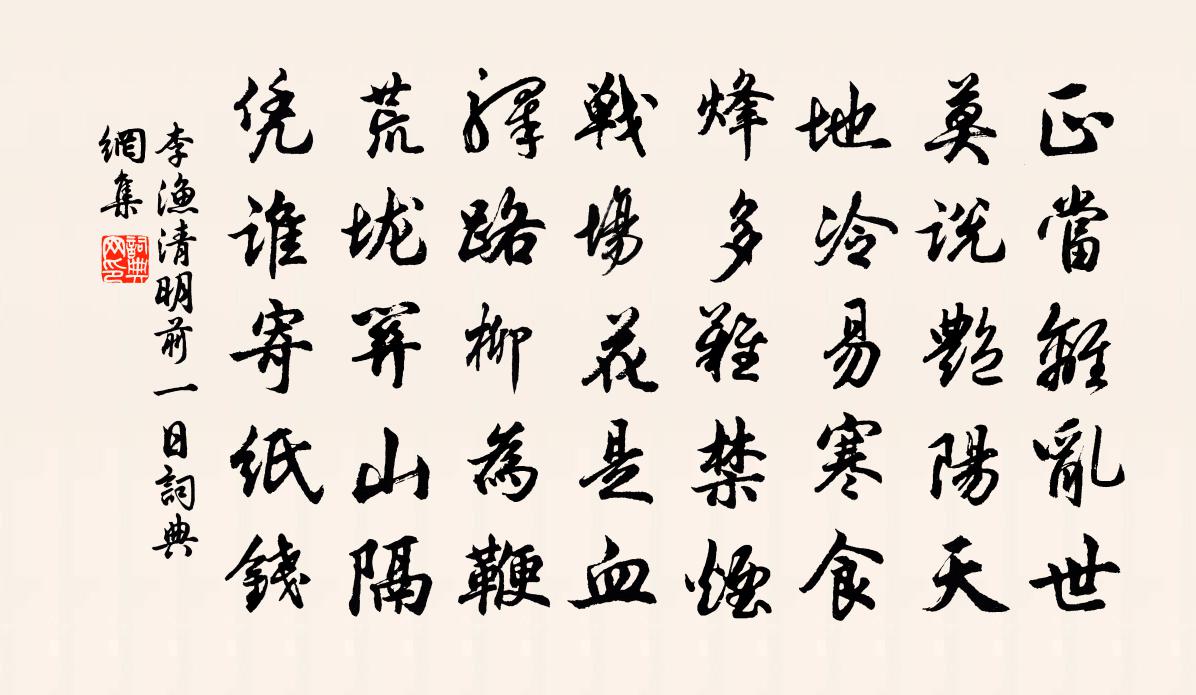 正當離亂世
莫說艷陽天
地冷易寒食
烽多難禁煙
戰場花是血
驛路柳為鞭
荒垅關山隔
凭誰寄紙錢
李漁清明前一日詞典
網集
詞典
网印